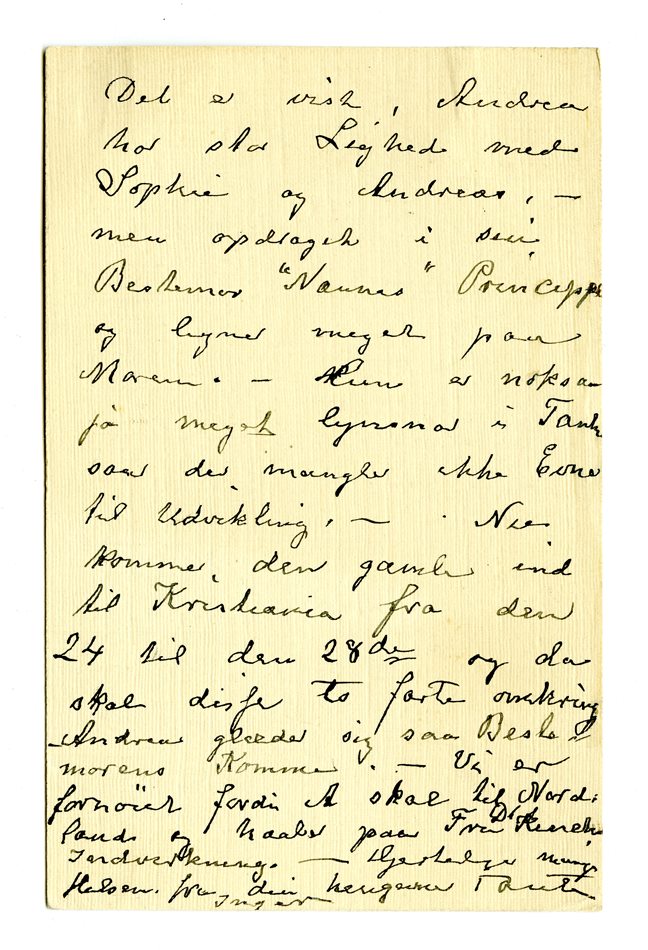 Det er vist, Andrea
har stor Lighed med
Sophie og Andreas, —
men opdraget i sin
Bestemor "Nannas" Princippe
og ligner meget paa
Moren. — Hun er noksaa
ja meget lynsnar i Tanke
saa der mangler ikke Evne
til Udvikling. — Nu
kommer den gamle ind
til Kristiania fra den
24 til den 28de og da
skal disse to farte omkring
— Andrea glæder sig saa Beste-
morens Komme. — Vi er
fornøiet fordi A skal til Nord-
land og haaber paa Fru Dr.
Indvirkning. — Hjertelige mange
Hilsen fra din hengivne Tante
Inger